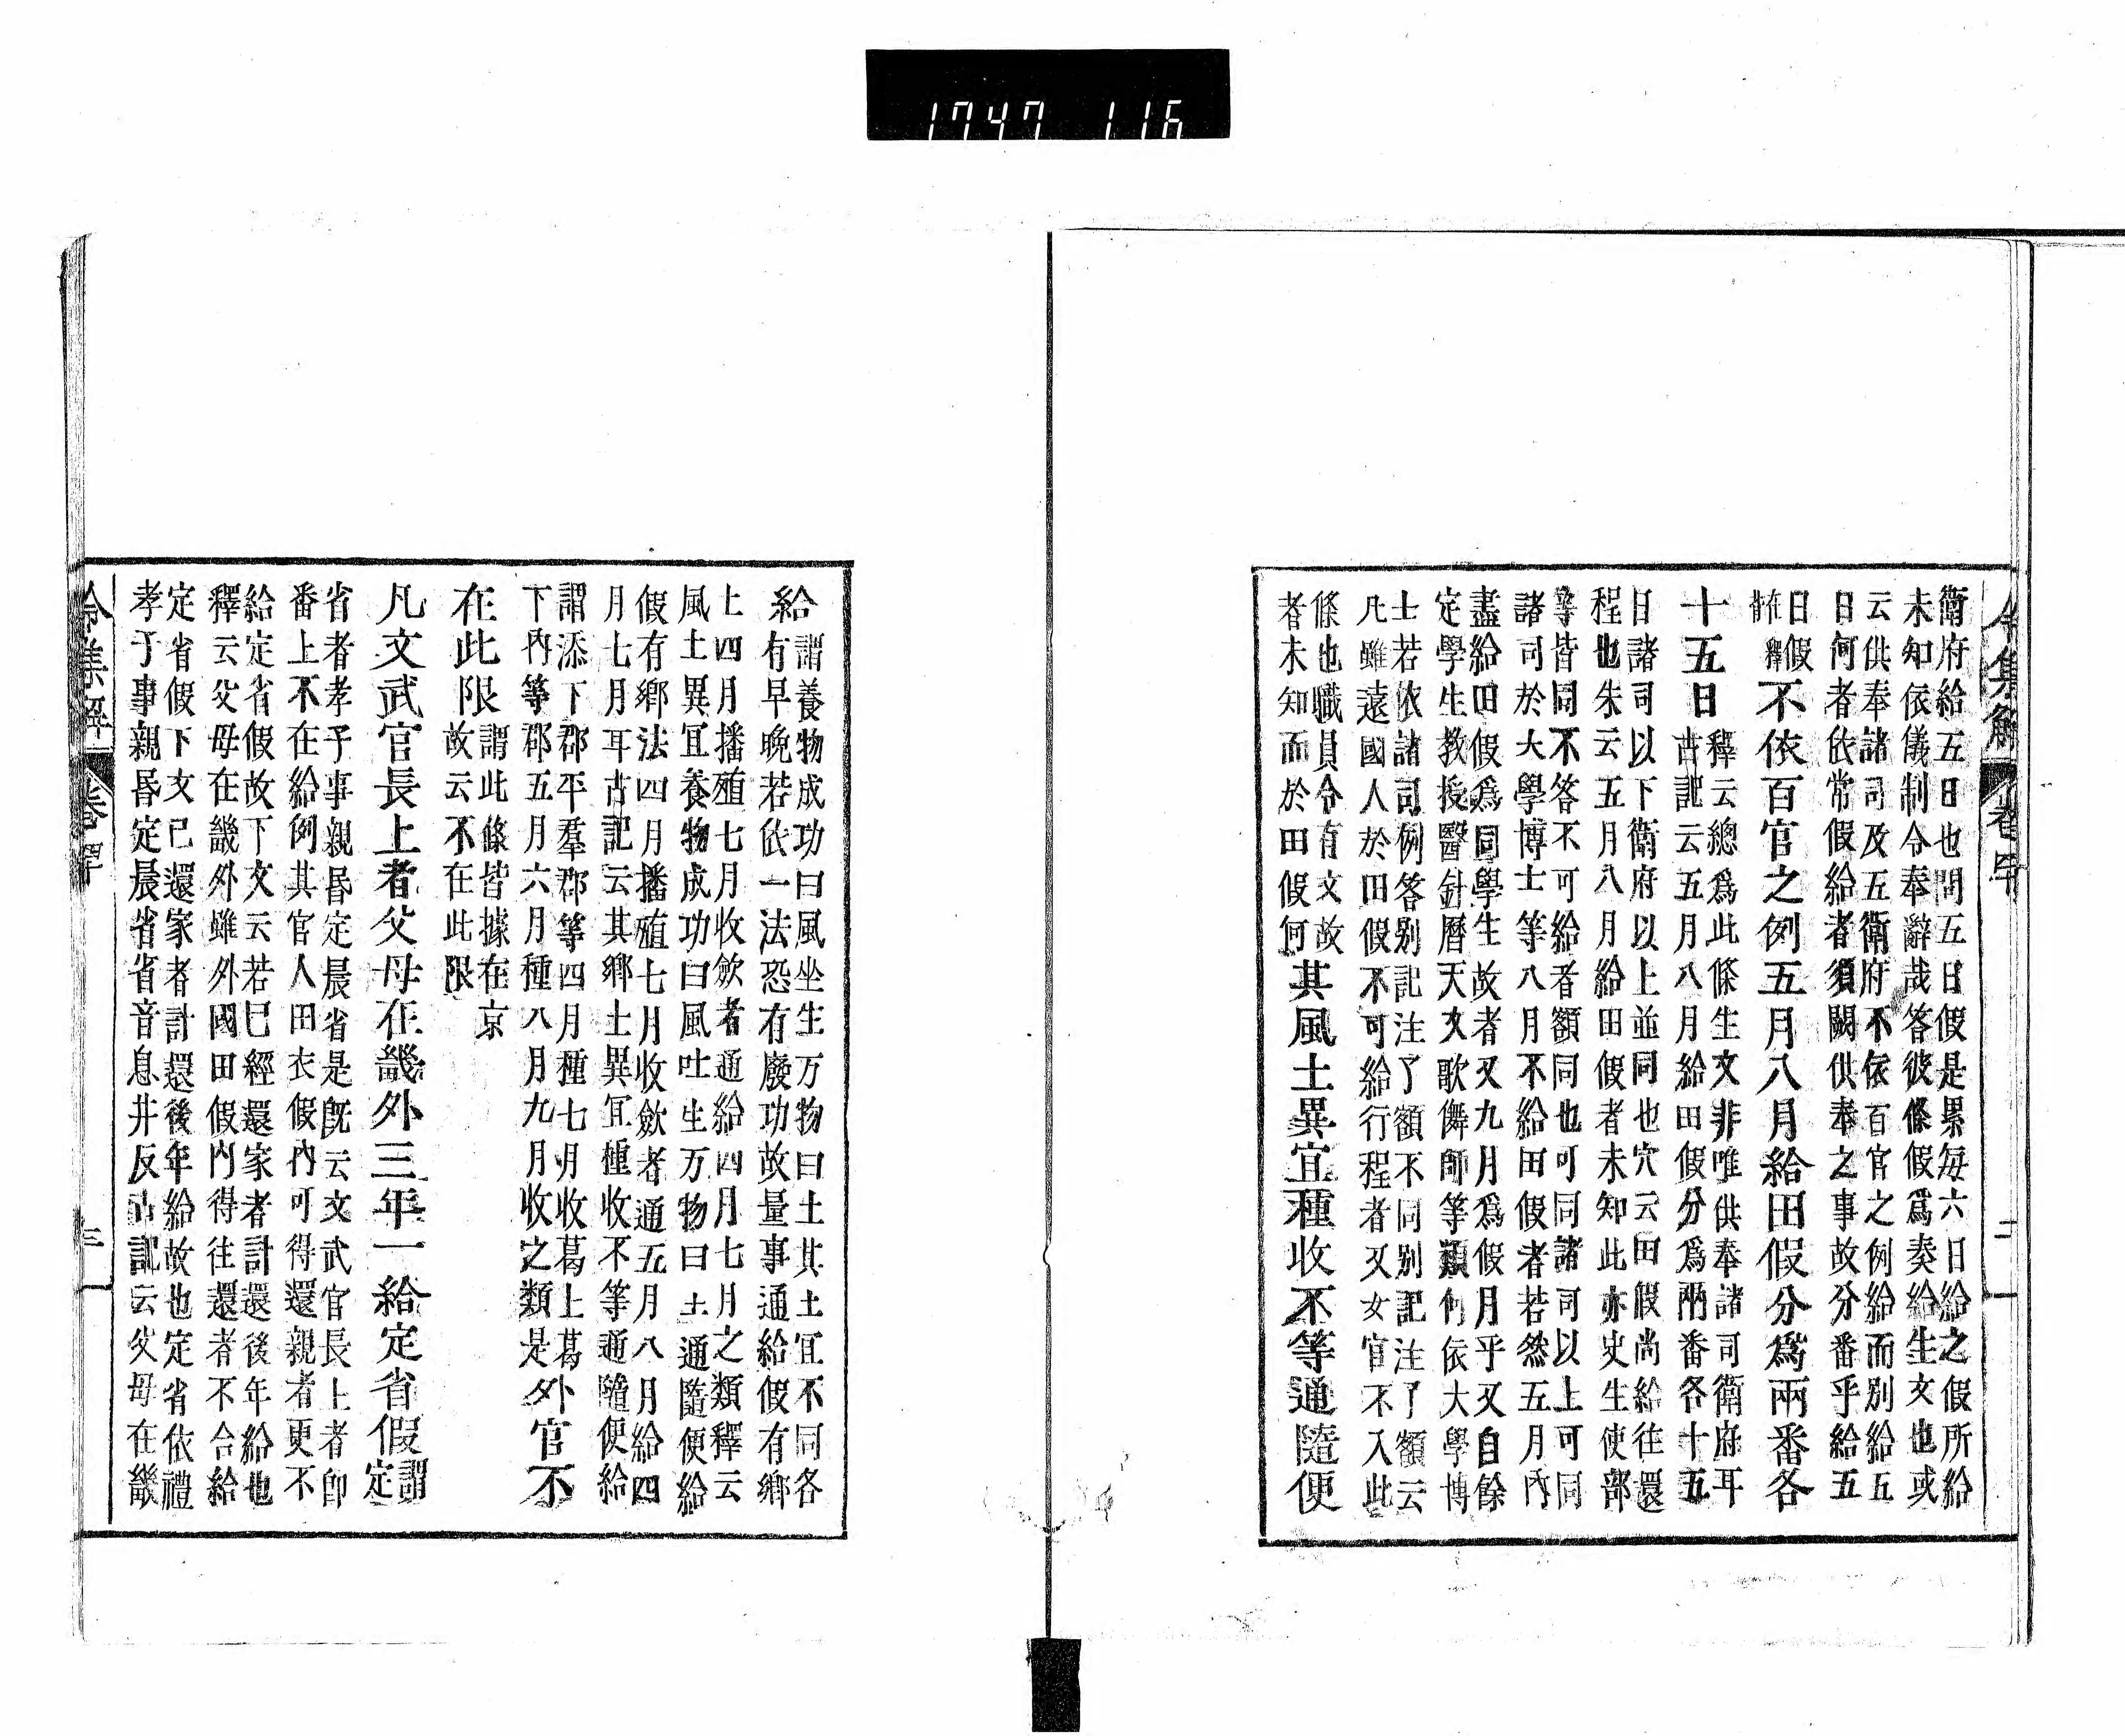 1747 116
令集解 卷四十 二
衛府給五日也問五日假是累每六日給之假所給
未知依儀制令奉辭哉答彼條假爲奏給生文也或
云供奉諸司及五衛府不依百官之例給而別給五
日何者依常假給者須闕供奉之事故分番乎給五
日假
在釋
不依百官之例五月八月給田假分爲兩番各
十五日
釋云總爲此條生文非唯供奉諸司衛府耳
古記云五月八月給田假分爲兩番各十五
日諸司以下衛府以上並同也穴云田假尚給往還
程也朱云五月八月給田假者未知此亦史生使部
等皆同不答不可給者額同也可同諸司以上可同
諸司於大學博士等八月不給田假者若然五月內
盡給田假爲同學生故者又九月爲假月乎又自餘
定學生教授醫針曆天文歌儛師等類何依大學博
士若依諸司例答別記注了額不同別記注了額云
凡雖遠國人於田假不可給行程者又女官不入此
條也職員令有文故
者未知而於田假何
其風土異宜種收不等通隨便
給
謂養物成功曰風坐生万物曰土其土宜不同各
有早晚若依一法恐有廢功故量事通給假有鄉
上四月播殖七月收斂者通給四月七月之類釋云
風土異宜養物成功曰風吐生万物曰土通隨便給
假有鄉法四月播殖七月收斂者通五月八月給四
月七月耳古記云其鄉土異宜種收不等通隨便給
謂添下郡平羣郡等四月種七月收葛上葛
下內等郡五月六月種八月九月收之類是
外官不
在此限
謂此條皆據在京
故云不在此限
凡文武官長上者父母在畿外三年一給定省假
謂
定
省者孝子事親昏定晨省是既云文武官長上者即
番上不在給例其官人田衣假內可得還親者更不
給定省假故下文云若已經還家者計還後年給也
釋云父母在畿外雖外國田假內得往還者不合給
定省假下文已還家者計還後年給故也定省依禮
孝子事親昏定晨省省音息井反古記云父母在畿
令集解 卷四十 三